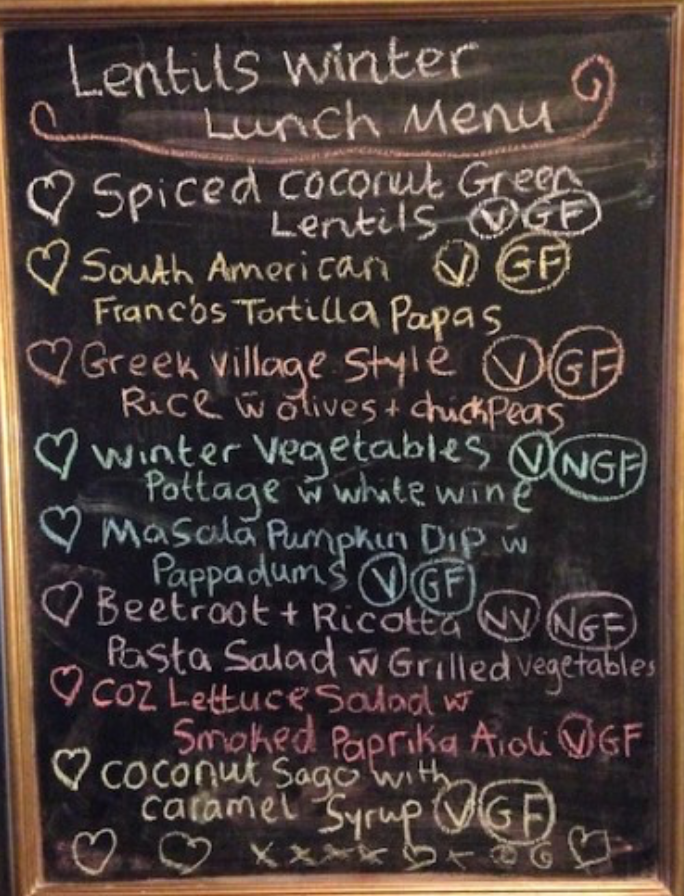 Lentils Winter
Lunch Menu
♡ Spiced Coconut Green
Lentils V GF
♡ South American V GF
Franco's Tortilla Papas
♡ Greek Village Style V GF
Rice w olives + chickpeas
♡ Winter Vegetables V NGF
Pottage w white wine
♡ Masala Pumpkin Dip w
Pappadums V GF
♡ Beetroot + Ricotta NV NGF
Pasta Salad w Grilled vegetables
♡ Coz Lettuce Salad w
Smoked Paprika Aioli V GF
♡ Coconut Sago with
caramel Syrup V GF